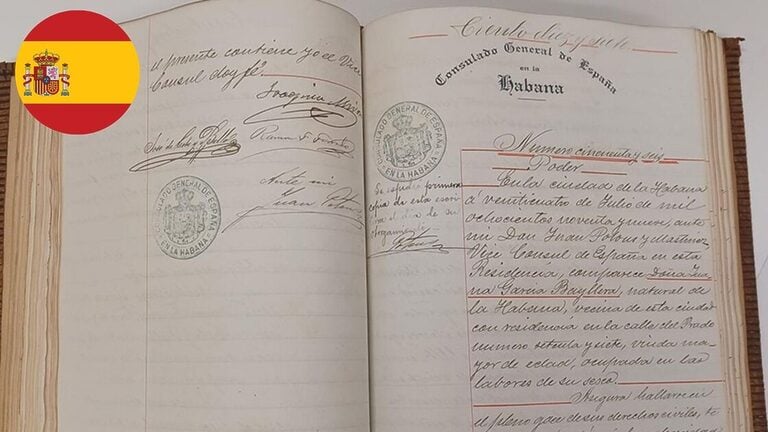 el presente contiene yo el Vice
Consul doy fé.
Joaquina
José de
Ramon F.
Ante mi
Juan Potous
CONSULADO GENERAL DE ESPAÑA
EN LA HABANA
Ciento diez y siete
Consulado General de España
en la
Habana
CONSULADO GENERAL DE ESPAÑA
EN LA HABANA
Se espidió primera
copia de esta
el dia de su
Potous
Numero cincuenta y seis
Poder
En la ciudad de la Habana
á veinticuatro de Julio de mil
ochocientos noventa y nueve, ante
mi Don Juan Potous y Martinez
Vice Consul de España en esta
Residencia, comparece Doña
na Garcia Bayllera, natural de
la Habana, vecina de esta ciudad
con residencia en la calle del Prado
numero setenta y siete, viuda ma-
yor de edad, ocupada en las
labores de su sexo.
Asegura hallarse en
el pleno goce de sus derechos civiles,